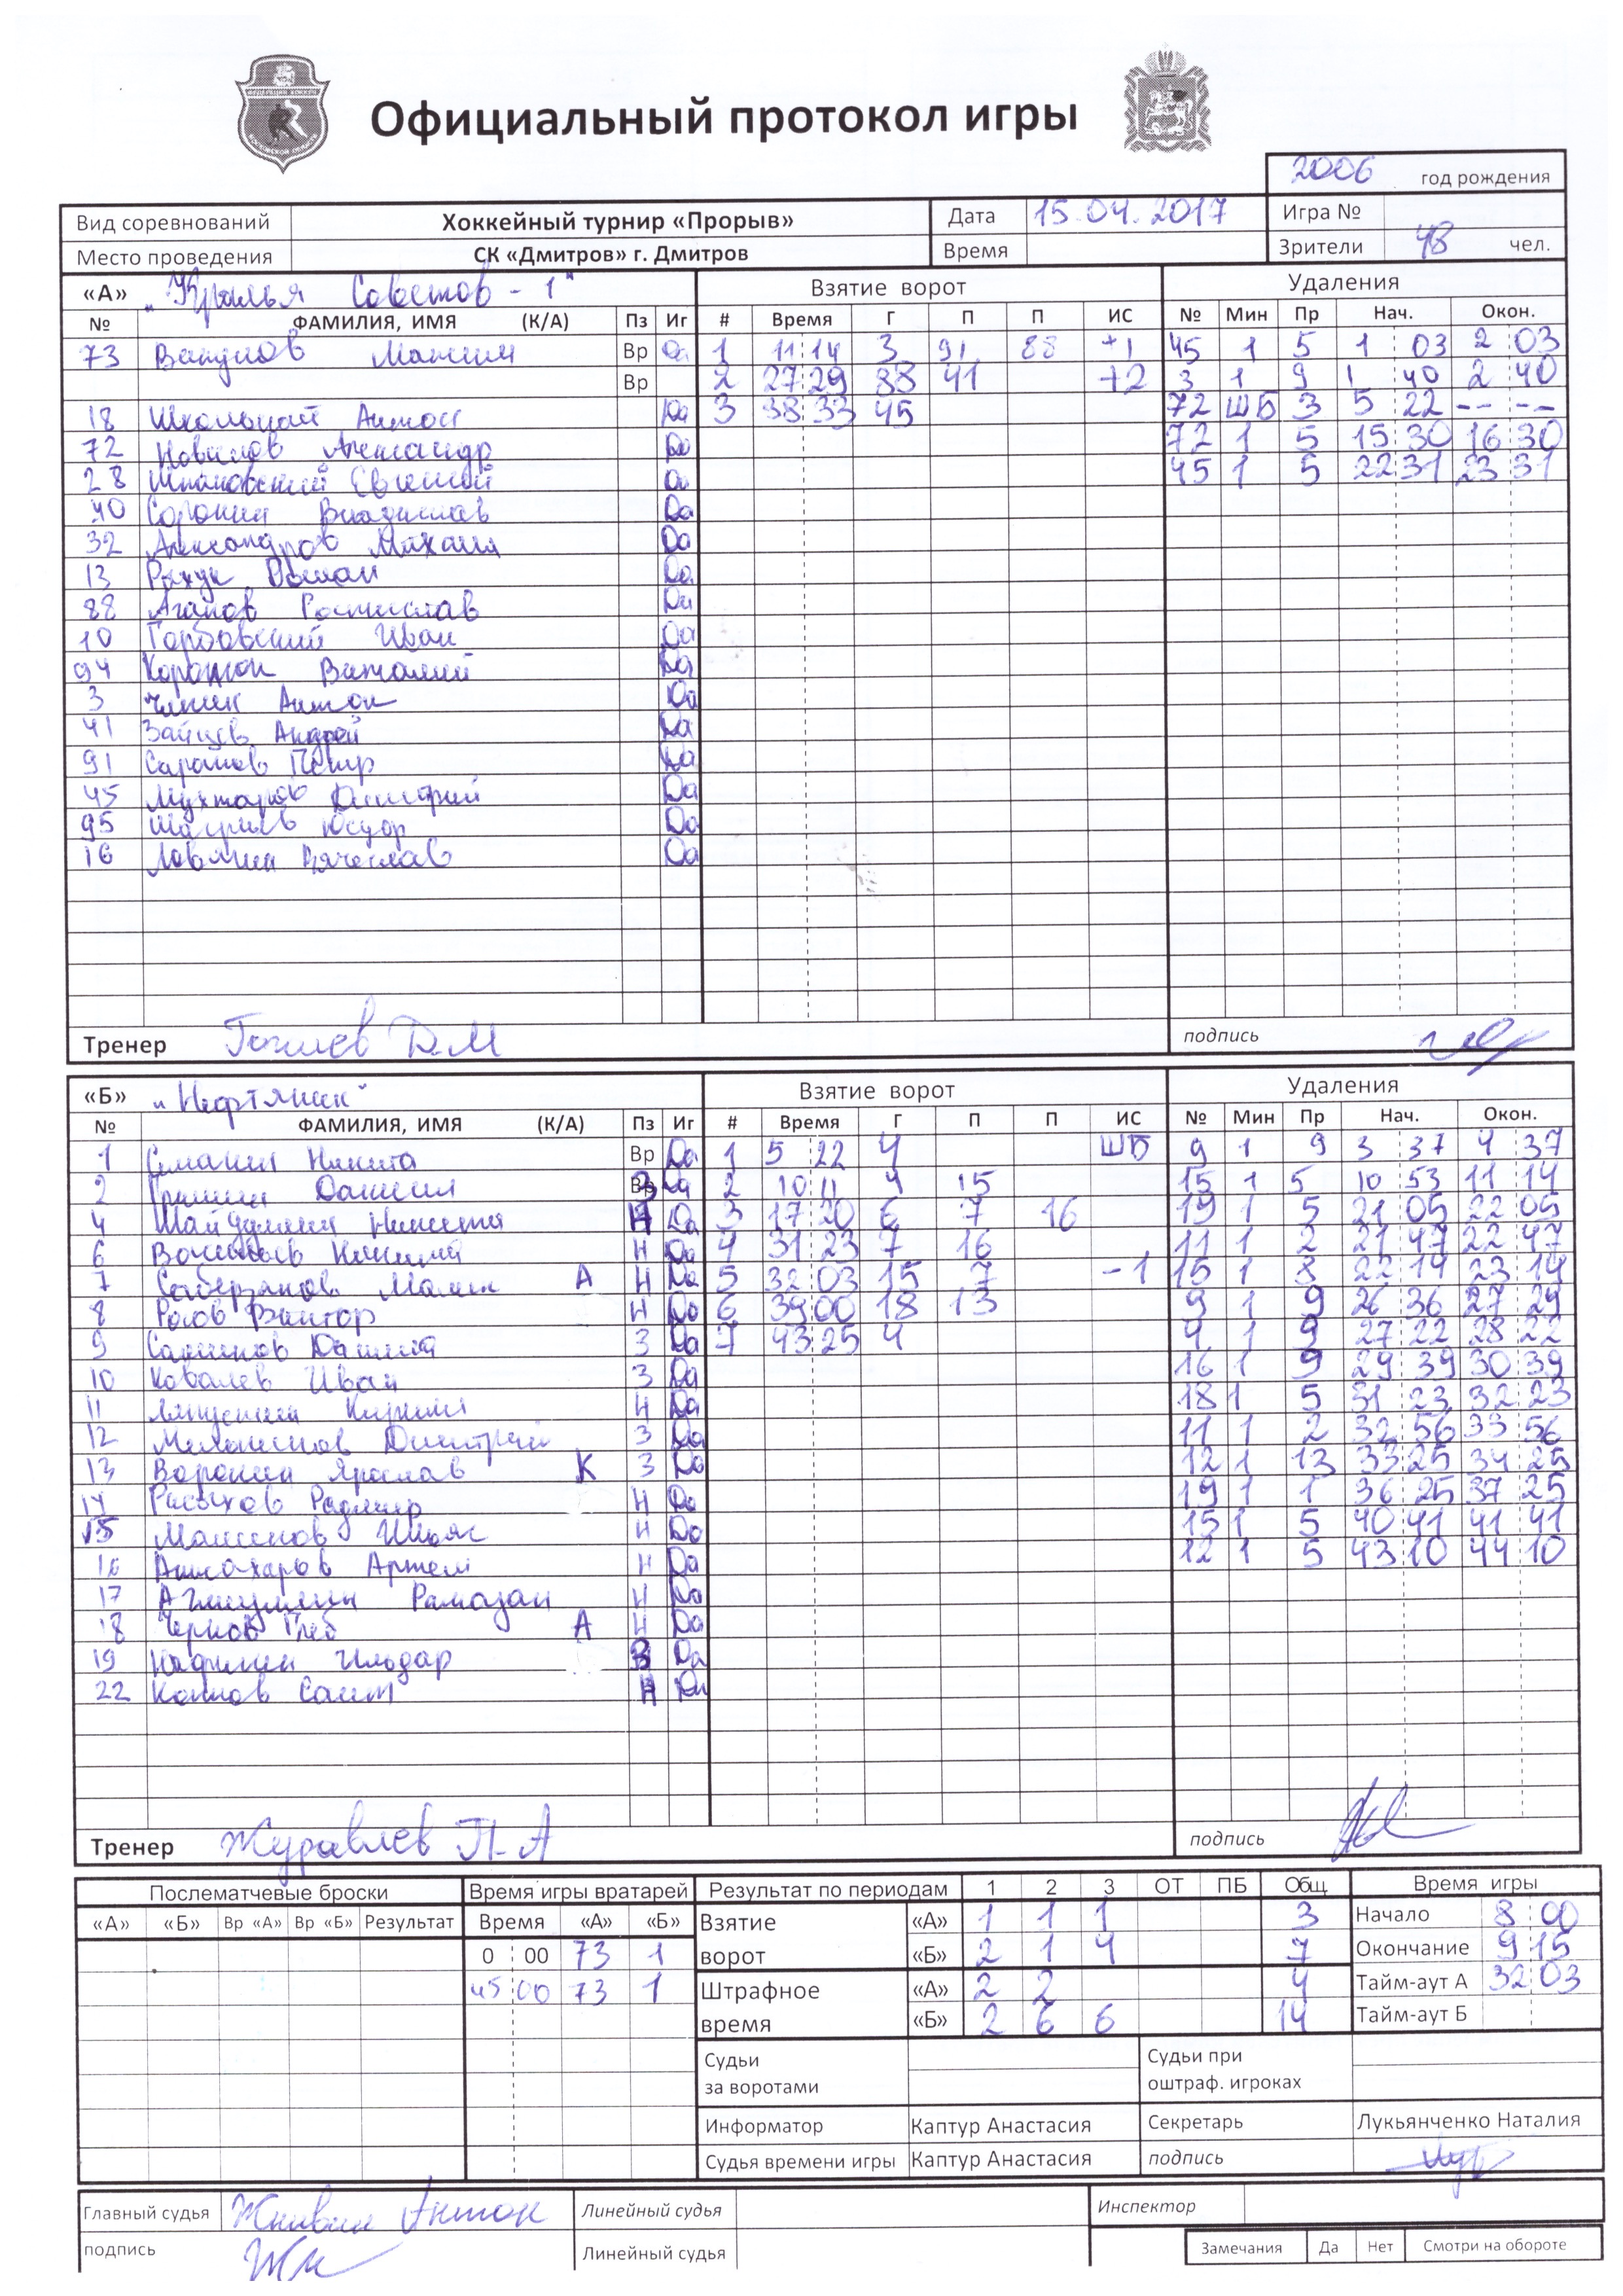 Официальный протокол игры
2006 год рождения
Вид соревнований Хоккейный турнир «Прорыв» Дата 15.04.2017 Игра №
Место проведения СК «Дмитров» г. Дмитров Время Зрители 48 чел.
«А» "Крылья Советов - 1" Взятие ворот Удаления
№ ФАМИЛИЯ, ИМЯ (К/А) Пз Иг # Время Г П П ИС № Мин Пр Нач. Окон.
73 Максим Вр Да 1 11 14 3 91 88 +1 45 1 5 1 03 2 03
Вр 2 27 29 88 41 +2 3 1 9 1 40 2 40
18 Да 3 38 33 45 72 ШБ 3 5 22 -- --
72 Александр Да 72 1 5 15 30 16 30
28 Евгений Да 45 1 5 22 31 23 31
40 Сорокин Владислав Да
32 Александров Михаил Да
13 Роман Да
88 Агапов Ростислав Да
10 Горбовский Иван Да
94 Виталий Да
3 Антон Да
41 Зайцев Андрей Да
91 Петр Да
45 Мухтаров Дмитрий Да
95 Да
16 Вячеслав Да
Тренер Д.М подпись
«Б» "Нефтяник" Взятие ворот Удаления
№ ФАМИЛИЯ, ИМЯ (К/А) Пз Иг # Время Г П П ИС № Мин Пр Нач. Окон.
1 Никита Вр Да 1 5 22 4 ШБ 9 1 9 3 37 4 37
2 Гришин Даниил З Да 2 10 11 4 15 15 1 5 10 53 11 14
4 Н Да 3 17 20 6 7 16 19 1 5 21 05 22 05
6 Н Да 4 31 23 7 16 11 1 2 21 47 22 47
7 А Н Да 5 32 03 15 7 -1 15 1 8 22 19 23 19
8 Н Да 6 39 00 18 13 9 1 9 26 36 27 29
9 З Да 7 43 25 4 4 1 9 27 22 28 22
10 Ковалев Иван З Да 16 1 9 29 39 30 39
11 Кирилл Н Да 18 1 5 31 23 32 23
12 Дмитрий З Да 11 1 2 32 56 33 56
13 Воронин Ярослав К З Да 12 1 13 33 25 34 25
14 Радмир Н Да 19 1 1 36 25 37 25
15 Н Да 15 1 5 40 41 41 41
16 Артем Н Да 12 1 5 43 10 44 10
17 Рамазан Н Да
18 Чернов Глеб А Н Да
19 Ильдар З Да
22 Н Да
Тренер Журавлев П.А подпись
Послематчевые броски Время игры вратарей Результат по периодам 1 2 3 ОТ ПБ Общ Время игры
«А» «Б» Вр «А» Вр «Б» Результат Время «А» «Б» Взятие «А» 1 1 1 3 Начало 8 00
0 00 73 1 ворот «Б» 2 1 4 7 Окончание 9 15
45 00 73 1 Штрафное «А» 2 2 4 Тайм-аут А 32 03
время «Б» 2 6 6 14 Тайм-аут Б
Судьи Судьи при
за воротами оштраф. игроках
Информатор Каптур Анастасия Секретарь Лукьянченко Наталия
Судья времени игры Каптур Анастасия подпись
Главный судья Антон Линейный судья Инспектор
подпись Линейный судья Замечания Да Нет Смотри на обороте